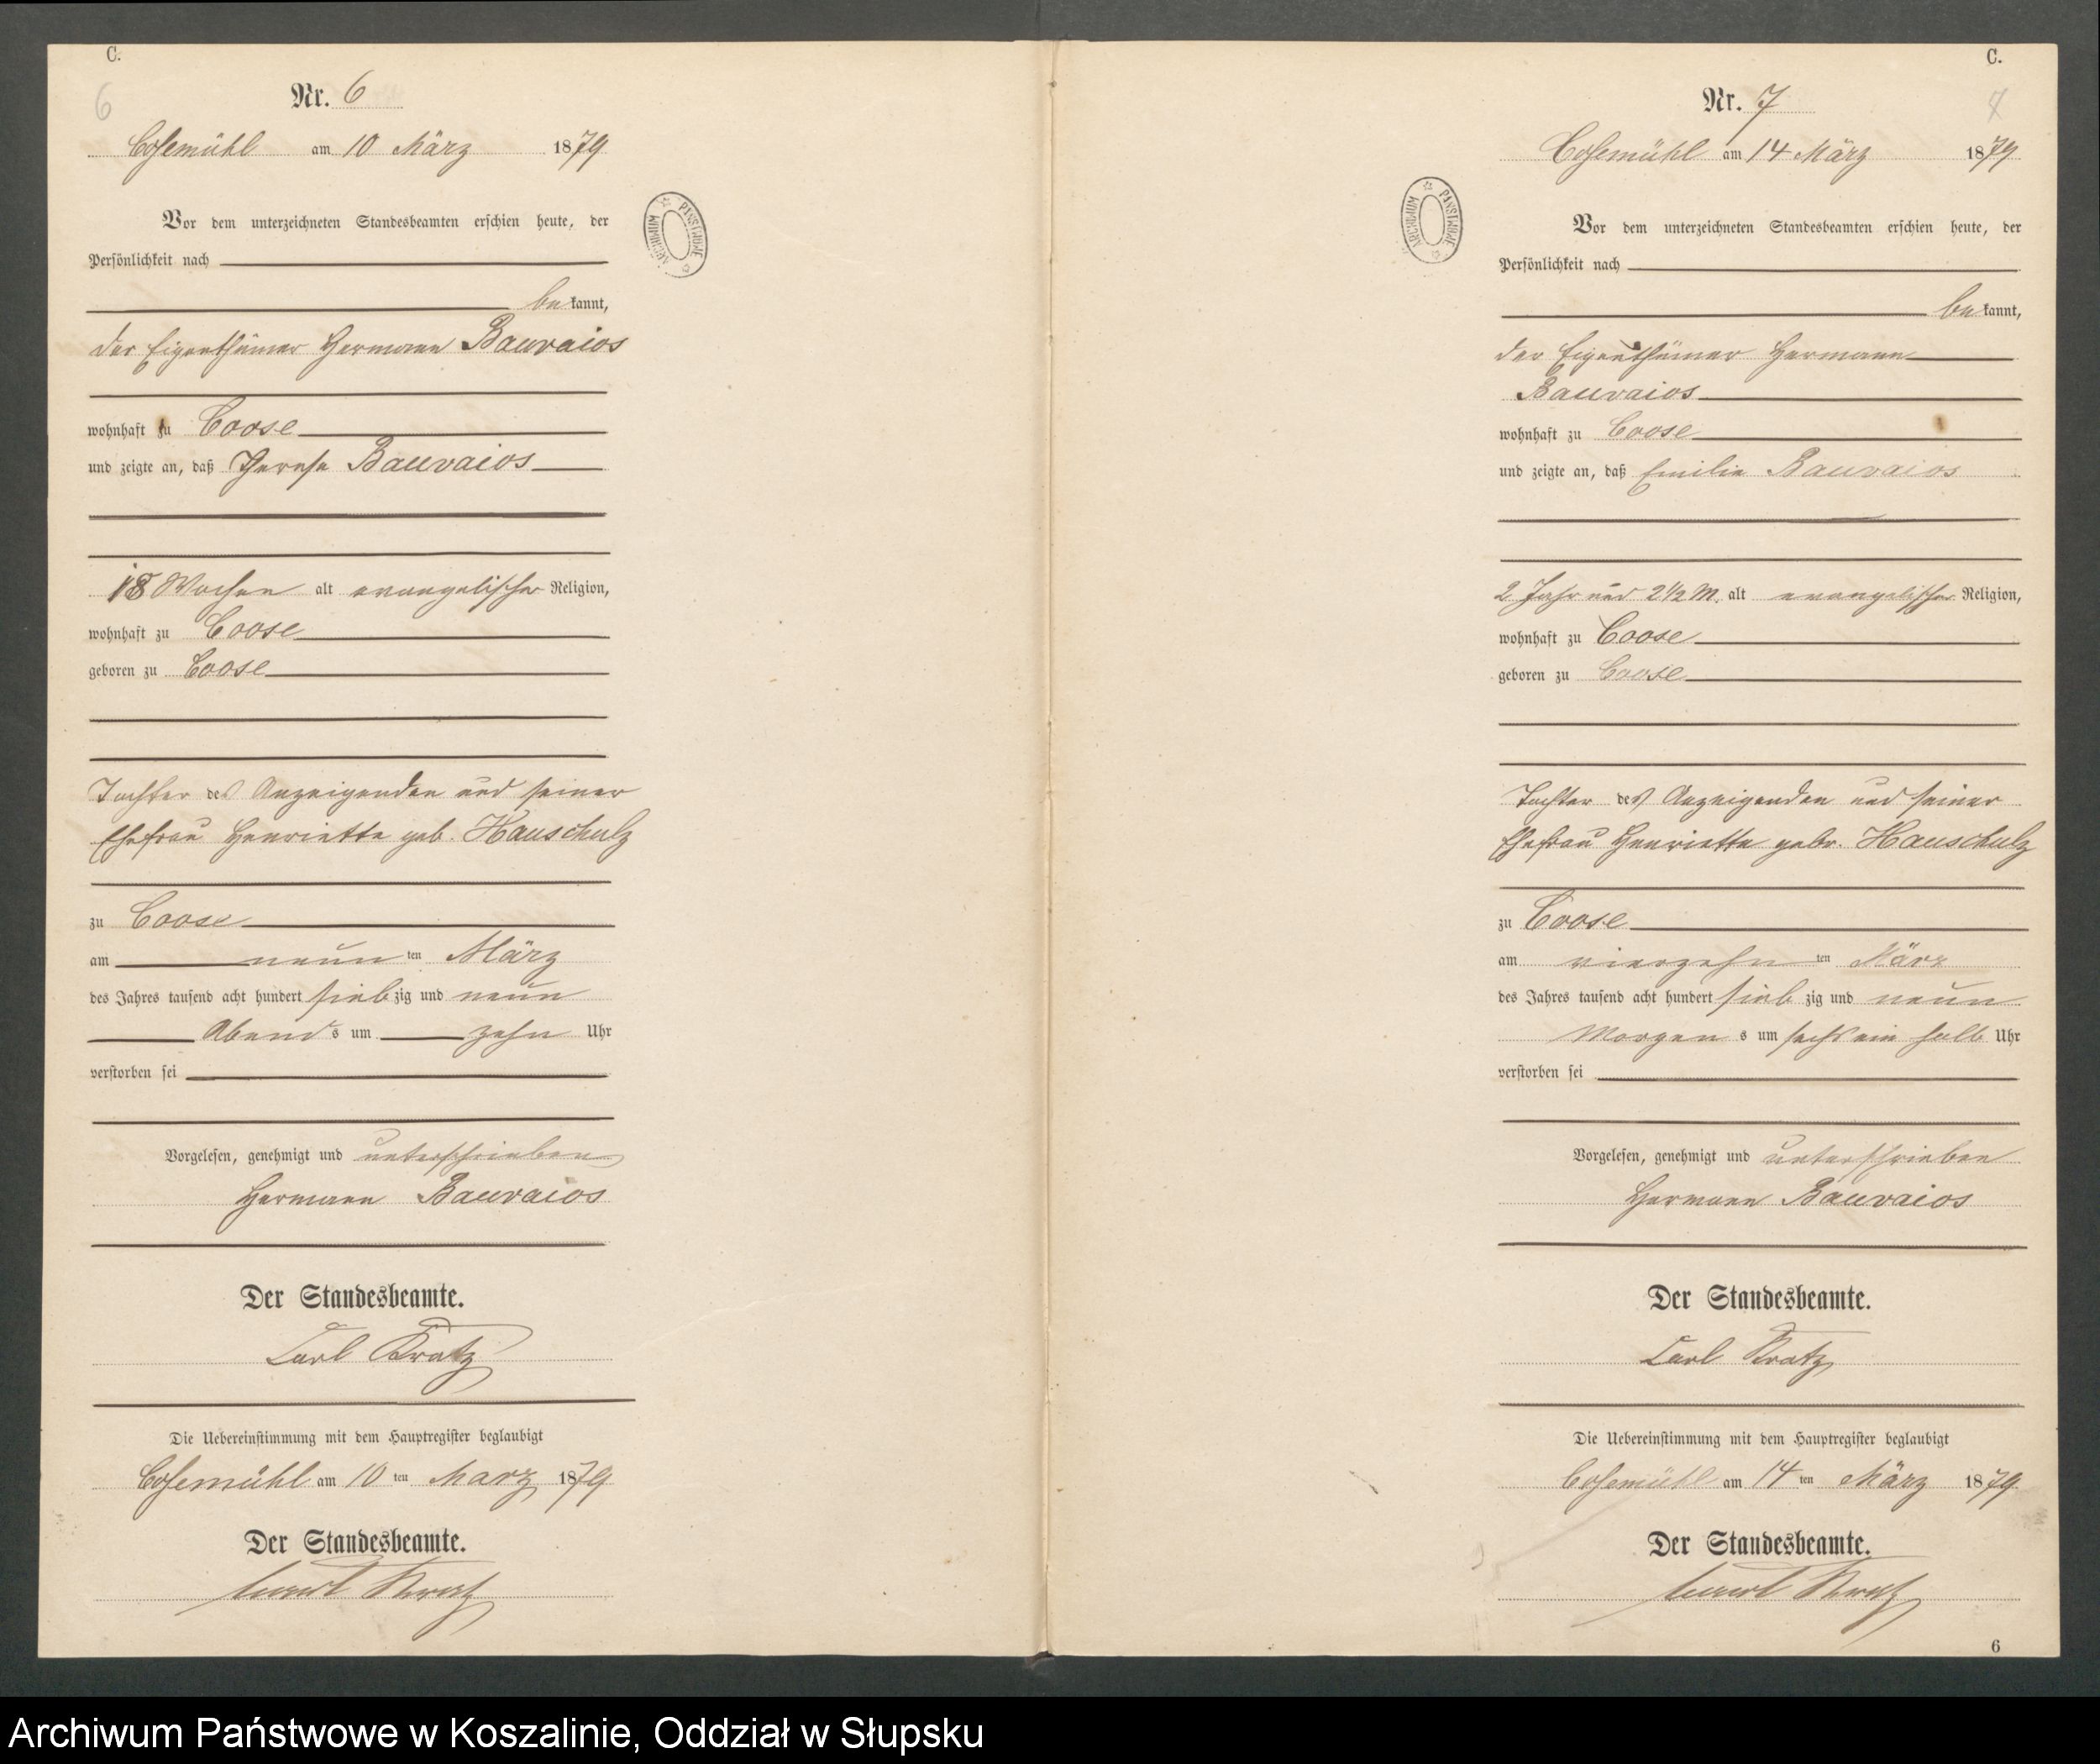 C.
6
Nr. 6
Cosemühl am 10 März 1879
Vor dem unterzeichneten Standesbeamten erschien heute, der
Persönlichkeit nach
bekannt,
der Eigenthümer Hermann Bauvaios
wohnhaft zu Coose
und zeigte an, daß Therese Bauvaios
18 Wochen alt evangelischer Religion,
wohnhaft zu Coose
geboren zu Coose
Tochter des Anzeigenden und seiner
Ehefrau Henriette geb. Hauschulz
zu Coose
am neunten März
des Jahres tausend acht hundert siebzig und neun
Abends um zehn Uhr
verstorben sei
Vorgelesen, genehmigt und unterschrieben
Hermann Bauvaios
Der Standesbeamte.
Carl Kratz
Die Uebereinstimmung mit dem Hauptregister beglaubigt
Cosemühl am 10ten Marz 1879
Der Standesbeamte.
Kratz
ARCHIWUM PAŃSTWOWE
C.
7
Nr. 7
Cosemühl am 14 März 1879
Vor dem unterzeichneten Standesbeamten erschien heute, der
Persönlichkeit nach
bekannt,
der Eigenthümer Hermann
Bauvaios
wohnhaft zu Coose
und zeigte an, daß Emilie Bauvaios
2 Jahr und 2 1/2 M. alt evangelischer Religion,
wohnhaft zu Coose
geboren zu Coose
Tochter des Anzeigenden und seiner
Ehefrau Henriette gebr. Hauschulz
zu Coose
am vierzehnten März
des Jahres tausend acht hundert siebzig und neun
Morgens um sechs ein halb Uhr
verstorben sei
Vorgelesen, genehmigt und unterschrieben
Hermann Bauvaios
Der Standesbeamte.
Carl Kratz
Die Uebereinstimmung mit dem Hauptregister beglaubigt
Cosemühl am 14ten März 1879
Der Standesbeamte.
Kratz
6
ARCHIWUM PAŃSTWOWE
Archiwum Państwowe w Koszalinie, Oddział w Słupsku